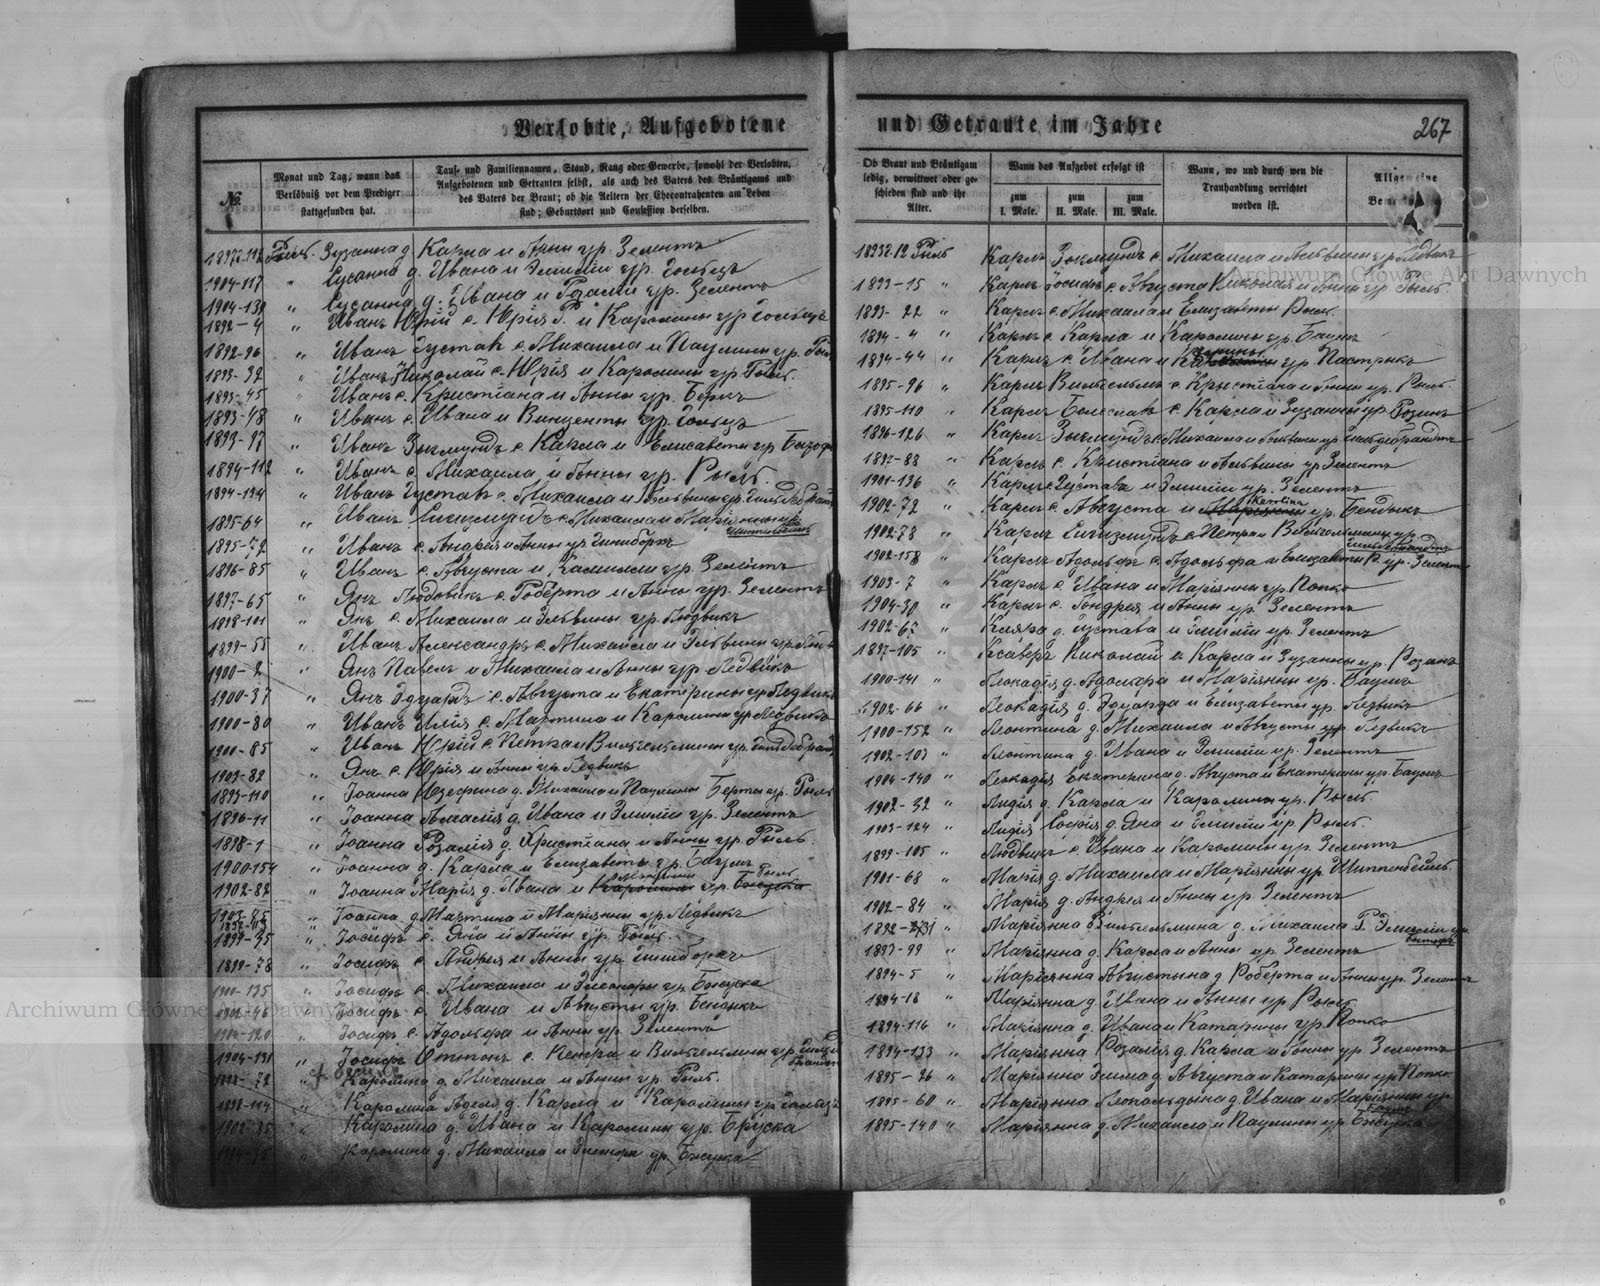 Verlobte, Aufgebotene
und Getraute im Jahre
267
№
Monat und Tag, wann das Verlöbniß vor dem Prediger stattgefunden hat.
Tauf- und Familiennamen, Stand, Rang oder Gewerbe, sowohl der Verlobten, Aufgebotenen und Getrauten selbst, als auch des Vaters des Bräutigams und des Vaters der Braut; ob die Aeltern der Ehecontrahenten am Leben sind; Geburtsort und Confession derselben.
Ob Braut und Bräutigam ledig, verwittwet oder geschieden sind und ihr Alter.
Wann das Aufgebot erfolgt ist
zum I. Male.
zum II. Male.
zum III. Male.
Wann, wo und durch wen die Trauhandlung verrichtet worden ist.
Allgemeine
Рыль. Зузанна д Карла и Анны ур. Зелентъ
1904-117 " Сусанна д. Ивана и Эмиліи ур. Гольцъ
1904-139 " Сусанна д. Ивана и Розаліи ур. Зелентъ
1892-4 " Иванъ Юрій с. Юрія Р. и Каролины ур Гольцъ
1892-96 " Иванъ Густавъ с. Михаила и Паулины ур. Рыль
1893-32 " Иванъ Николай с. Юрія и Каролины ур Рыль.
1893-45 " Иванъ с. Кристіана и Анны ур. Беркъ
1893-48 " Иванъ с. Ивана и Винценты ур. Гольцъ
1893-97 " Иванъ Зыгмундъ с. Карла и Елисаветы ур
1894-112 " Иванъ с. Михаила и Анны ур. Рыль.
1894-134 " Иванъ Густавъ с. Михаила и Альвины ур. Гильдебрандтъ
1895-64 " Иванъ Сигизмундъ с. Михаила и Маріянны ур.
1895-72 " Иванъ с. Андрея и Анны ур
1896-85 " Иванъ с. Августа и Камиллы ур. Зелентъ
1897-65 " Янъ Людовикъ с. Роберта и Анны ур. Зелентъ
1898-101 " Янъ с. Михаила и Эльвины ур. Людвикъ
1899-55 " Иванъ Александръ с. Михаила и Эльвины ур.
1900-2 " Янъ Павелъ с Михаила и Анны ур. Ледвикъ
1900-37 " Янъ Эдуардъ с. Августа и Екатерины ур Ледвикъ
1900-80 " Иванъ Илія с. Мартина и Каролины ур Ледвикъ
1900-85 " Иванъ Юрій с. Петра и Вильгельмины ур. Гильдебрандъ
1903-82 " Янъ с. Юрія и Анны ур. Ледвикъ
1893-110 " Іоанна Юзефина д. Михаила и Паулины Берты ур. Рыль
1896-11 " Іоанна Амалія д. Ивана и Эмиліи ур. Зелентъ
1898-1 " Іоанна Розалія д. Христіана и Анны ур. Рыль.
1900-154 " Іоанна д. Карла и Елизаветы ур. Баумъ
1902-82 " Іоанна Марія д. Ивана и Каролины ур.
Рыль
1903-85 " Іоанна д. Мартина и Маріянны ур. Ледвикъ
1899-35 " Іосифъ с. Яна и Анны ур. Рыль.
1899-78 " Іосифъ с. Андрея и Анны ур.
1900-135 " Іосифъ с. Михаила и Элеоноры ур.
1902-46 " Іосифъ с. Ивана и Августы ур.
1904-120 " Іосифъ с. Адольфа и Анны ур. Зелентъ
1904-131 " Іосифъ Оттонъ с. Петра и Вильгельмины ур.
Каролина д. Михаила и Анны ур. Рыль.
1898-114 " Каролина Адель д. Карла и Каролины ур Гольцъ
1902-85 " Каролина д. Ивана и Каролины ур. Бруска
Каролина д. Михаила и
Рыль Карлъ Зыгмундъ с. Михаила и Альвины ур Ледвикъ
1893-15 " Карлъ Іосифъ с. Августа Николая и Анны ур Рыль.
1893-22 " Карлъ с. Михаила и Елизаветы Рыль.
1894-4 " Карлъ с. Карла и Каролины ур. Баумъ
1894-44 " Карлъ с. Ивана и ур Пастрыкъ
1895-96 " Карлъ Вильгельмъ с. Кристіана и Анны ур. Рыль.
1895-110 " Карлъ Болеславъ с. Карла и Зузанны ур Розинъ
1896-126 " Карлъ Зыгмундъ с. Михаила и Альвины ур Гильдебрандтъ
1897-88 " Карлъ с. Кристіана и Альвины ур Зелентъ
1901-136 " Карлъ с Густава и Эмиліи ур. Зелентъ
Karolina
1902-72 " Карлъ с. Августа и Маріянны ур. Бендыкъ
1902-78 " Карлъ Сигизмундъ с. Петра и Вильгельмины ур.
Гильдебрандтъ
1902-158 " Карлъ Адольфъ с. Адольфа и Елизаветы Р. ур. Зелентъ
1903-7 " Карлъ с. Ивана и Маріянны ур. Попко
1904-30 " Карлъ с. Андрея и Анны ур. Зелентъ
1902-67 " Клара д. Густава и Эмиліи ур. Зелентъ
1897-105 " Ксаверъ Николай с. Карла и Зузанны ур. Розинъ
1900-141 " Леокадія д. Адольфа и Маріянны ур. Баумъ
1902-66 " Леокадія д. Эдуарда и Елизаветы ур. Ледвикъ
1900-152 " Леонтина д. Михаила и Августы ур Ледвикъ
1902-103 " Леонтина д. Ивана и Эмиліи ур. Зелентъ
1904-140 " Леокадія Екатерина д. Августа и Екатерины ур. Баумъ
1902-32 " Лидія д. Карла и Каролины ур. Рыль.
1903-124 " Лидія Софія д. Яна и Эмиліи ур. Рыль.
1899-105 " Людвикъ с. Ивана и Каролины ур. Зелентъ
1901-68 " Марія д. Михаила и Маріянны ур. Шттенбейль
1902-84 " Марія д. Андрея и Анны ур. Зелентъ
Маріянна Вильгельмина д. Михаила Р. Эмиліи ур.
1893-99 " Маріянна д. Карла и Анны ур. Зелентъ
1894-5 " Маріянна Августина д Роберта и Анны ур. Зелентъ
1894-18 " Маріянна д. Ивана и Анны ур Рыль.
1894-116 " Маріянна д. Ивана и Катарины ур. Попко
1894-133 " Маріянна Розалія д. Карла и Анны ур Зелентъ
1895-26 " Маріянна Эмма д Августа и Катарины ур Попко
1895-60 " Маріянна Леопольдына д. Ивана и Маріянны ур
Баумъ
1895-140 " Маріянна д. Михаила и Паулины ур
Archiwum Główne Akt Dawnych
Archiwum Główne Akt Dawnych